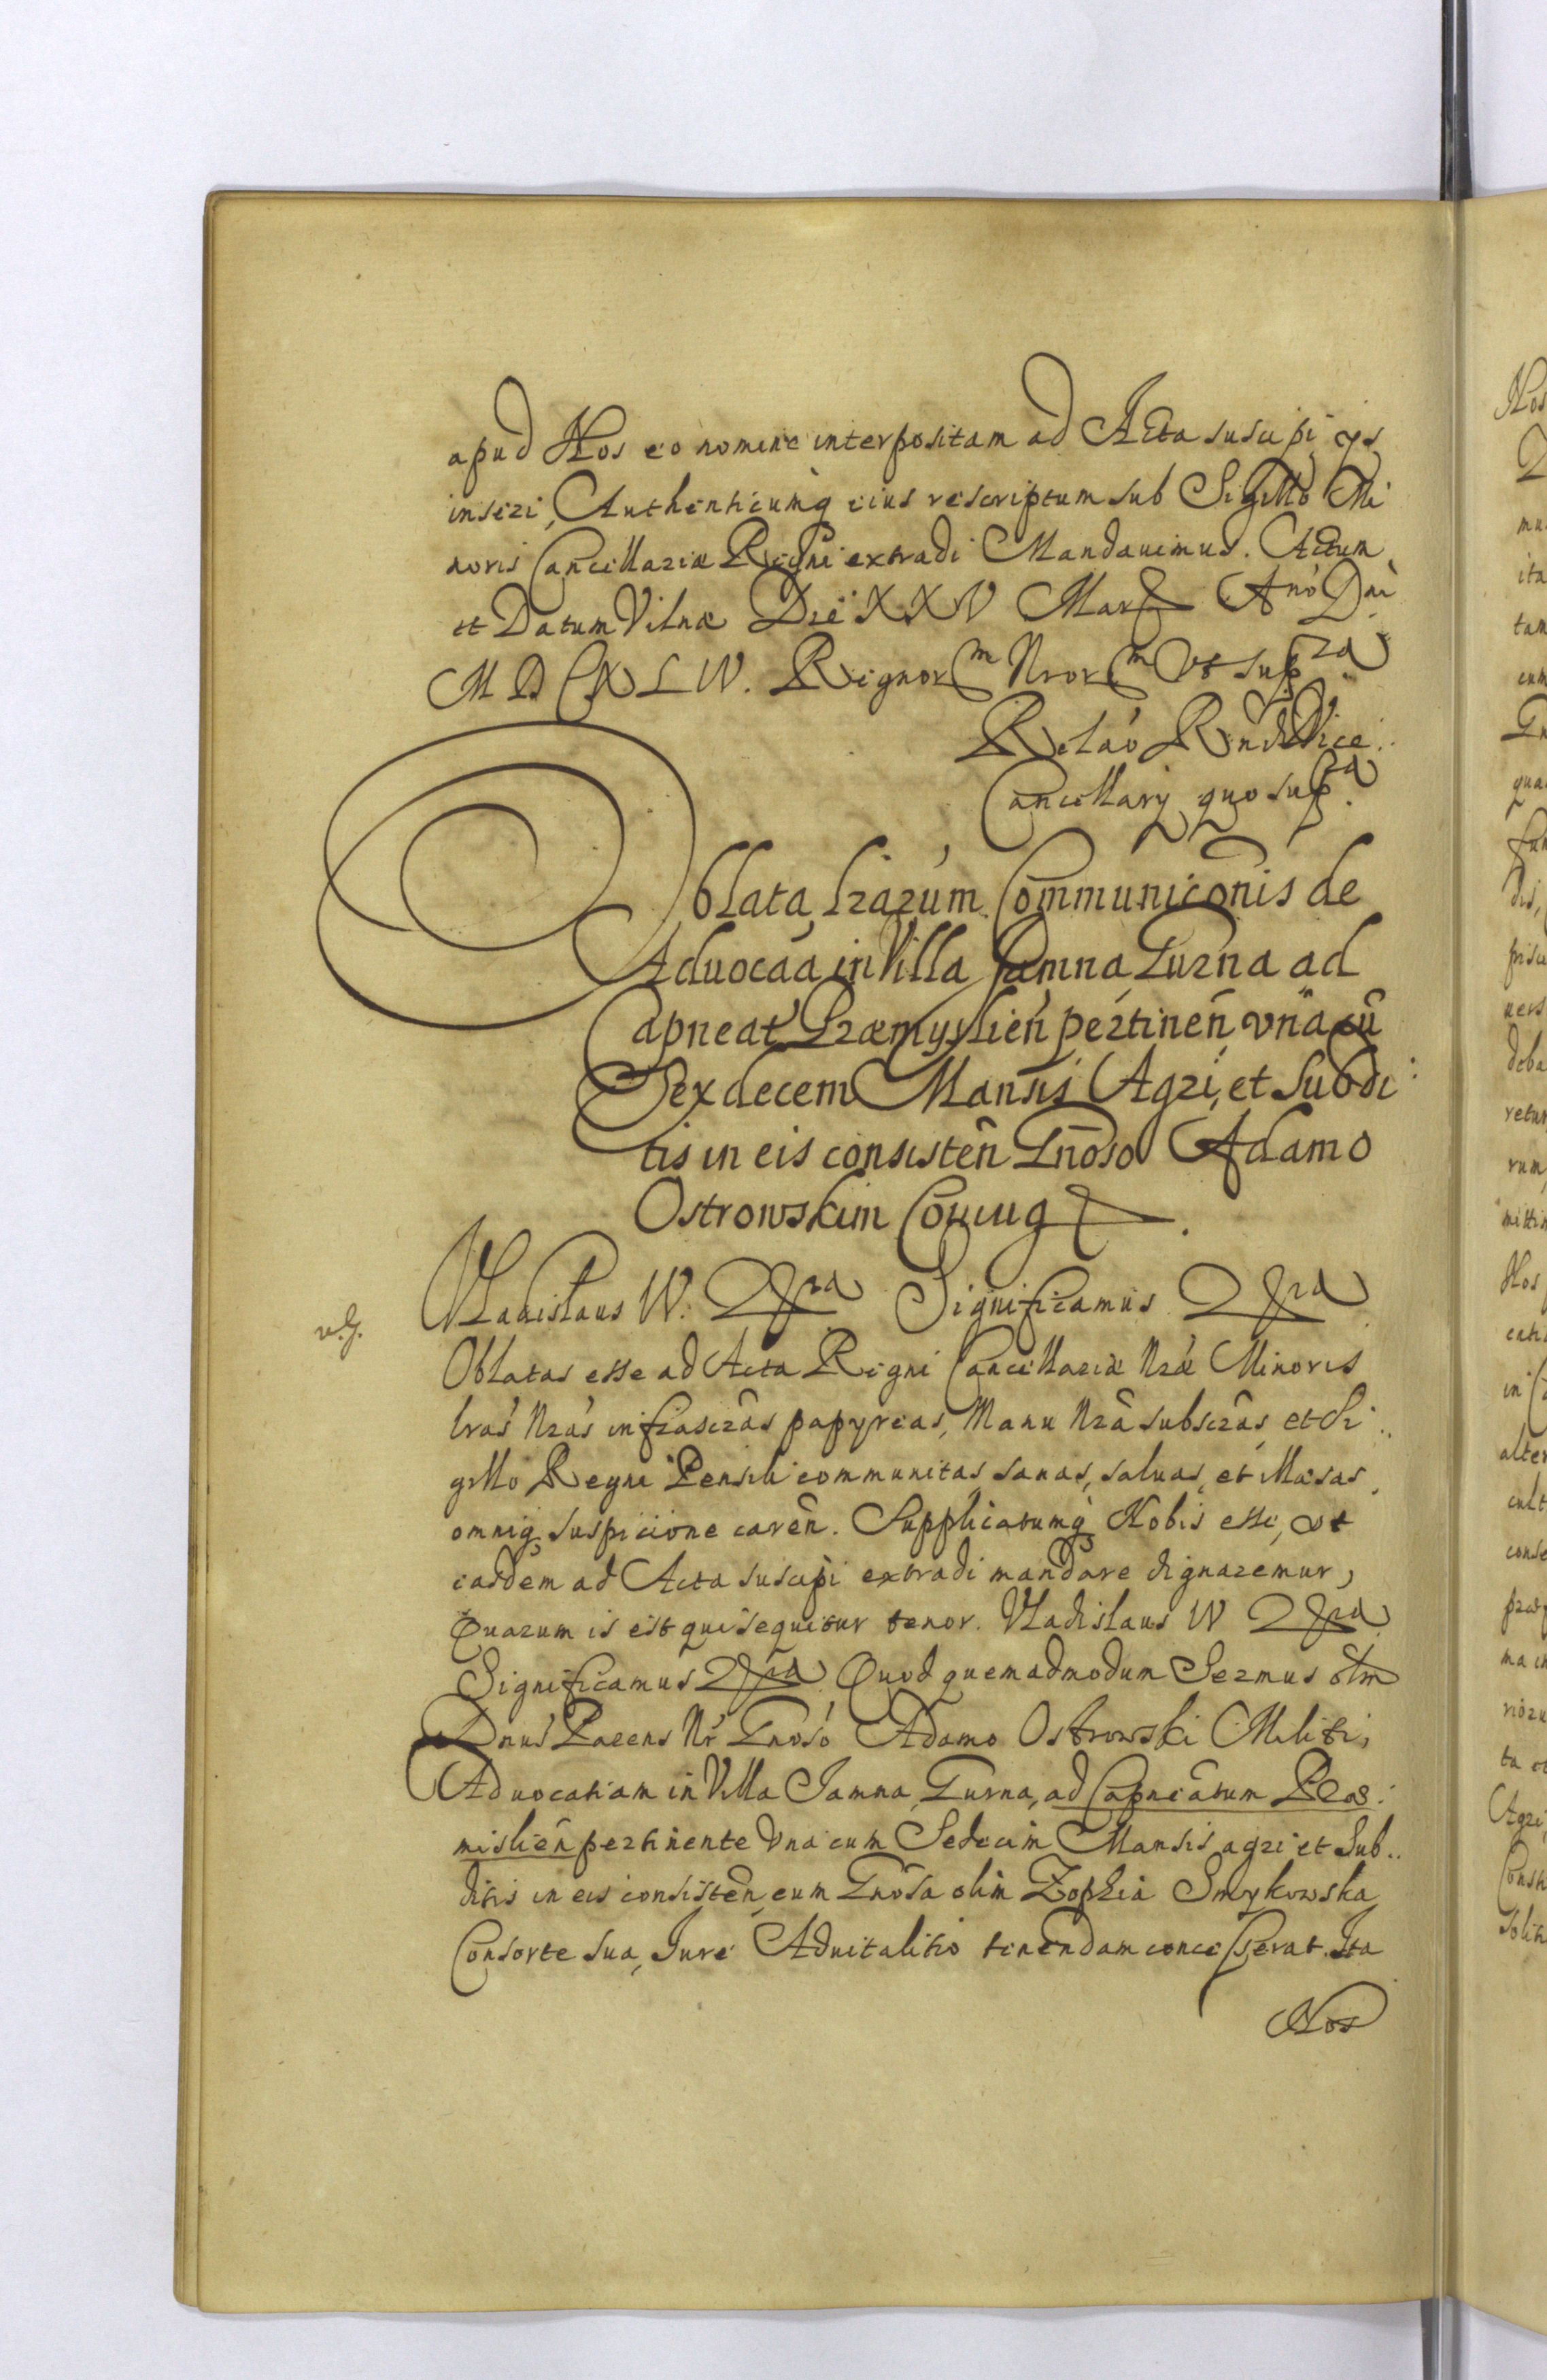 apud Nos eo nomine interpositam ad Acta suscipi, ys,
inseri, Authenticumq eius rescriptum sub Sigillo Mi
noris Cancellariæ Regni extradi Mandauimus. Actum
et Datum Vilnæ Die XXV Mar Anó Dni
M D C X L IV. Regnorm Nrorm vt supra
Relaó Rndi Vice:
Cancellarÿ quo supra.
Oblata Lrarúm Communicõnis de
Aduocaá in Villa Jamna Gurna ad
Capneat Præmysliẽn pertineñ vna cũ
Sexdecem Mansis Agri, et Subdi:
tis in eis consistẽn Gnõso Adamo
Ostrowskim Coniug.
v.g.
Vladislaus IV. Significamus
Oblatas esse ad Acta Regni Cancellariæ Nræ Minoris
lras Nras infrascrãs papyreas, Manu Nrâ subscrãs, et Si:
gillo Regni Pensili communitas, sanas, saluas, et illæsas,
omniq suspicione carẽn. Supplicatumq Nobis esse, vt
easdem ad Acta suscipi extradi mandare dignaremur,
Quarum is est qui sequitur tenor. Vladislaus IV
Significamus Quod quemadmodum Sermus olim
Dnus Parens Nr Gnoso Adamo Ostrowski Militi,
Aduocatiam in Villa Jamna, Gurna, ad Capneãtum Præ:
misliẽn pertinente vna cum Sedecim Mansis agri et Sub..
ditis in eis consistẽn, cum Gnõsa olim Zophia Smykowska
Consorte sua, Jure Aduitalitio tenendam concesserat. Ita
Nos